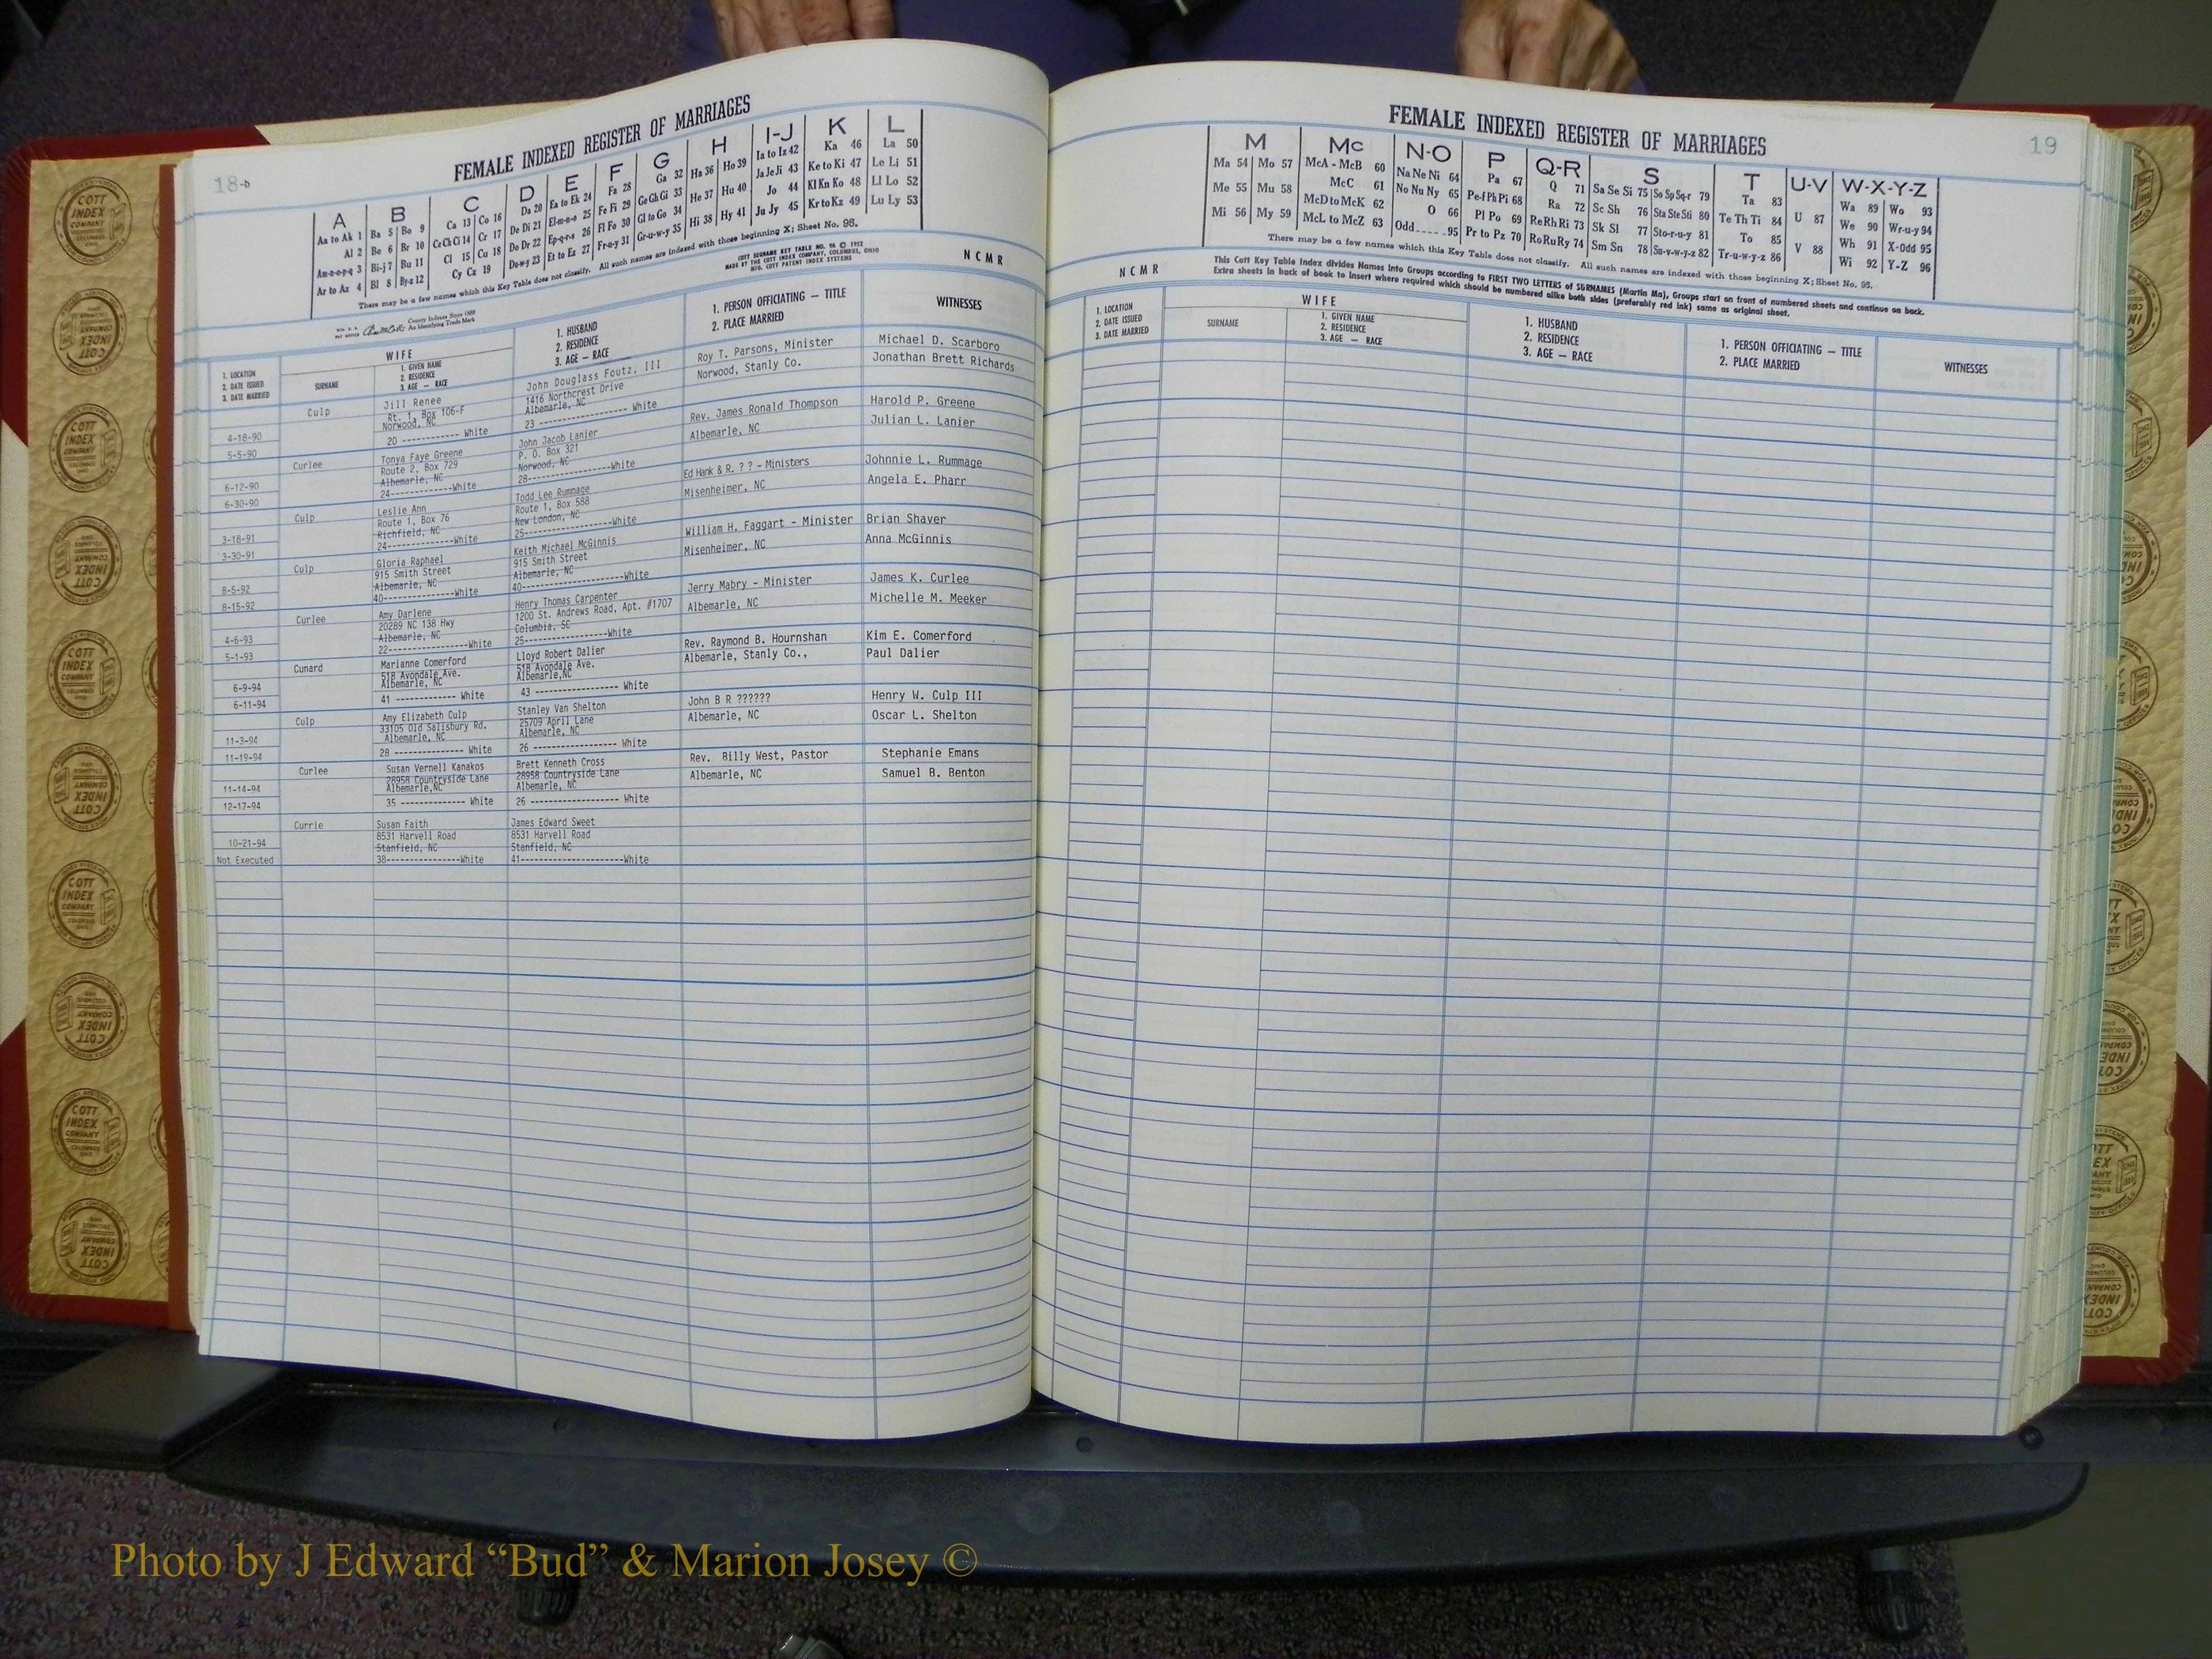 18-D
FEMALE INDEXED REGISTER OF MARRIAGES
A
Aa to Ak 1
Al 2
Am-n-o-p-q 3
Ar to Az 4
B
Ba 5 Bo 9
Be 6 Br 10
Bi-j 7 Bu 11
Bl 8 By-z 12
C
Ca 13 Co 16
Ce Ch Ci 14 Cr 17
Cl 15 Cu 18
Cy Cz 19
D
Da 20
De Di 21
Do Dr 22
Du-w-y 23
E
Ea to Ek 24
El-m-n-o 25
Ep-q-r-s 26
Et to Ez 27
F
Fa 28
Fe Fi 29
Fl Fo 30
Fr-u-y 31
G
Ga 32
Ge Gh Gi 33
Gl to Go 34
Gr-u-w-y 35
H
Ha 36 Ho 39
He 37 Hu 40
Hi 38 Hy 41
I-J
Ia to Iz 42
Ja Je Ji 43
Jo 44
Ju Jy 45
K
Ka 46
Ke to Ki 47
Kl Kn Ko 48
Kr to Kz 49
L
La 50
Le Li 51
Ll Lo 52
Lu Ly 53
There may be a few names which this Key Table does not classify. All such names are indexed with those beginning X; Sheet No. 95.
County Indexes Since 1888
An Identifying Trade Mark
COTT SURNAME KEY TABLE NO. 96 © 1952
MADE BY THE COTT INDEX COMPANY, COLUMBUS, OHIO
MFG. COTT PATENT INDEX SYSTEMS
NCMR
1. LOCATION
2. DATE ISSUED
3. DATE MARRIED
WIFE
SURNAME
1. GIVEN NAME
2. RESIDENCE
3. AGE — RACE
1. HUSBAND
2. RESIDENCE
3. AGE — RACE
1. PERSON OFFICIATING — TITLE
2. PLACE MARRIED
WITNESSES
4-18-90
5-5-90
Culp
Jill Renee
Rt. 1, Box 106-F
Norwood, NC
20 ------------ White
John Douglass Foutz, III
1416 Northcrest Drive
Albemarle, NC
23 ---------------- White
Roy T. Parsons, Minister
Norwood, Stanly Co.
Michael D. Scarboro
Jonathan Brett Richards
6-12-90
6-30-90
Curlee
Tonya Faye Greene
Route 2, Box 729
Albemarle, NC
24------------White
John Jacob Lanier
P. O. Box 321
Norwood, NC
28----------------White
Rev. James Ronald Thompson
Albemarle, NC
Harold P. Greene
Julian L. Lanier
3-18-91
3-30-91
Culp
Leslie Ann
Route 1, Box 76
Richfield, NC
24------------White
Todd Lee Rummage
Route 1, Box 588
New London, NC
25----------------White
Ed Hank & R. ? ? - Ministers
Misenheimer, NC
Johnnie L. Rummage
Angela E. Pharr
8-5-92
8-15-92
Culp
Gloria Raphael
915 Smith Street
Albemarle, NC
40--------------White
Keith Michael McGinnis
915 Smith Street
Albemarle, NC
40-------------------White
William H. Faggart - Minister
Misenheimer, NC
Brian Shaver
Anna McGinnis
4-6-93
5-1-93
Curlee
Amy Darlene
20289 NC 138 Hwy
Albemarle, NC
22--------------White
Henry Thomas Carpenter
1200 St. Andrews Road, Apt. #1707
Columbia, SC
25----------------White
Jerry Mabry - Minister
Albemarle, NC
James K. Curlee
Michelle M. Meeker
6-9-94
6-11-94
Cunard
Marianne Comerford
518 Avondale Ave.
Albemarle, NC
41 ------------ White
Lloyd Robert Dalier
518 Avondale Ave.
Albemarle,NC
43 ---------------- White
Rev. Raymond B. Hournshan
Albemarle, Stanly Co.,
Kim E. Comerford
Paul Dalier
11-3-94
11-19-94
Culp
Amy Elizabeth Culp
33105 Old Salisbury Rd.
Albemarle, NC
28 -------------- White
Stanley Van Shelton
25709 April Lane
Albemarle, NC
26 ---------------- White
John B R ??????
Albemarle, NC
Henry W. Culp III
Oscar L. Shelton
11-14-94
12-17-94
Curlee
Susan Vernell Kanakos
28958 Countryside Lane
Albemarle,NC
35 ------------- White
Brett Kenneth Cross
28958 Countryside Lane
Albemarle, NC
26 ---------------- White
Rev. Billy West, Pastor
Albemarle, NC
Stephanie Emans
Samuel B. Benton
10-21-94
Not Executed
Currie
Susan Faith
8531 Harvell Road
Stanfield, NC
38---------------White
James Edward Sweet
8531 Harvell Road
Stanfield, NC
41-------------------White
19
FEMALE INDEXED REGISTER OF MARRIAGES
M
Ma 54 Mo 57
Me 55 Mu 58
Mi 56 My 59
Mc
McA - McB 60
McC 61
McD to McK 62
McL to McZ 63
N-O
Na Ne Ni 64
No Nu Ny 65
O 66
Odd.....95
P
Pa 67
Pe-f Ph Pi 68
Pl Po 69
Pr to Pz 70
Q-R
Q 71
Ra 72
Re Rh Ri 73
Ro Ru Ry 74
S
Sa Se Si 75 So Sp Sq-r 79
Sc Sh 76 Sta Ste Sti 80
Sk Sl 77 Sto-r-u-y 81
Sm Sn 78 Su-v-w-y-z 82
T
Ta 83
Te Th Ti 84
To 85
Tr-u-w-y-z 86
U-V
U 87
V 88
W-X-Y-Z
Wa 89 Wo 93
We 90 Wr-u-y 94
Wh 91 X-Odd 95
Wi 92 Y-Z 96
There may be a few names which this Key Table does not classify. All such names are indexed with those beginning X; Sheet No. 95.
This Cott Key Table Index divides Names into Groups according to FIRST TWO LETTERS of SURNAMES (Martin Ma), Groups start on front of numbered sheets and continue on back.
Extra sheets in back of book to insert where required which should be numbered alike both sides (preferably red ink) same as original sheet.
NCMR
1. LOCATION
2. DATE ISSUED
3. DATE MARRIED
WIFE
SURNAME
1. GIVEN NAME
2. RESIDENCE
3. AGE — RACE
1. HUSBAND
2. RESIDENCE
3. AGE — RACE
1. PERSON OFFICIATING — TITLE
2. PLACE MARRIED
WITNESSES
COTT
INDEX
COMPANY
Photo by J Edward “Bud” & Marion Josey ©